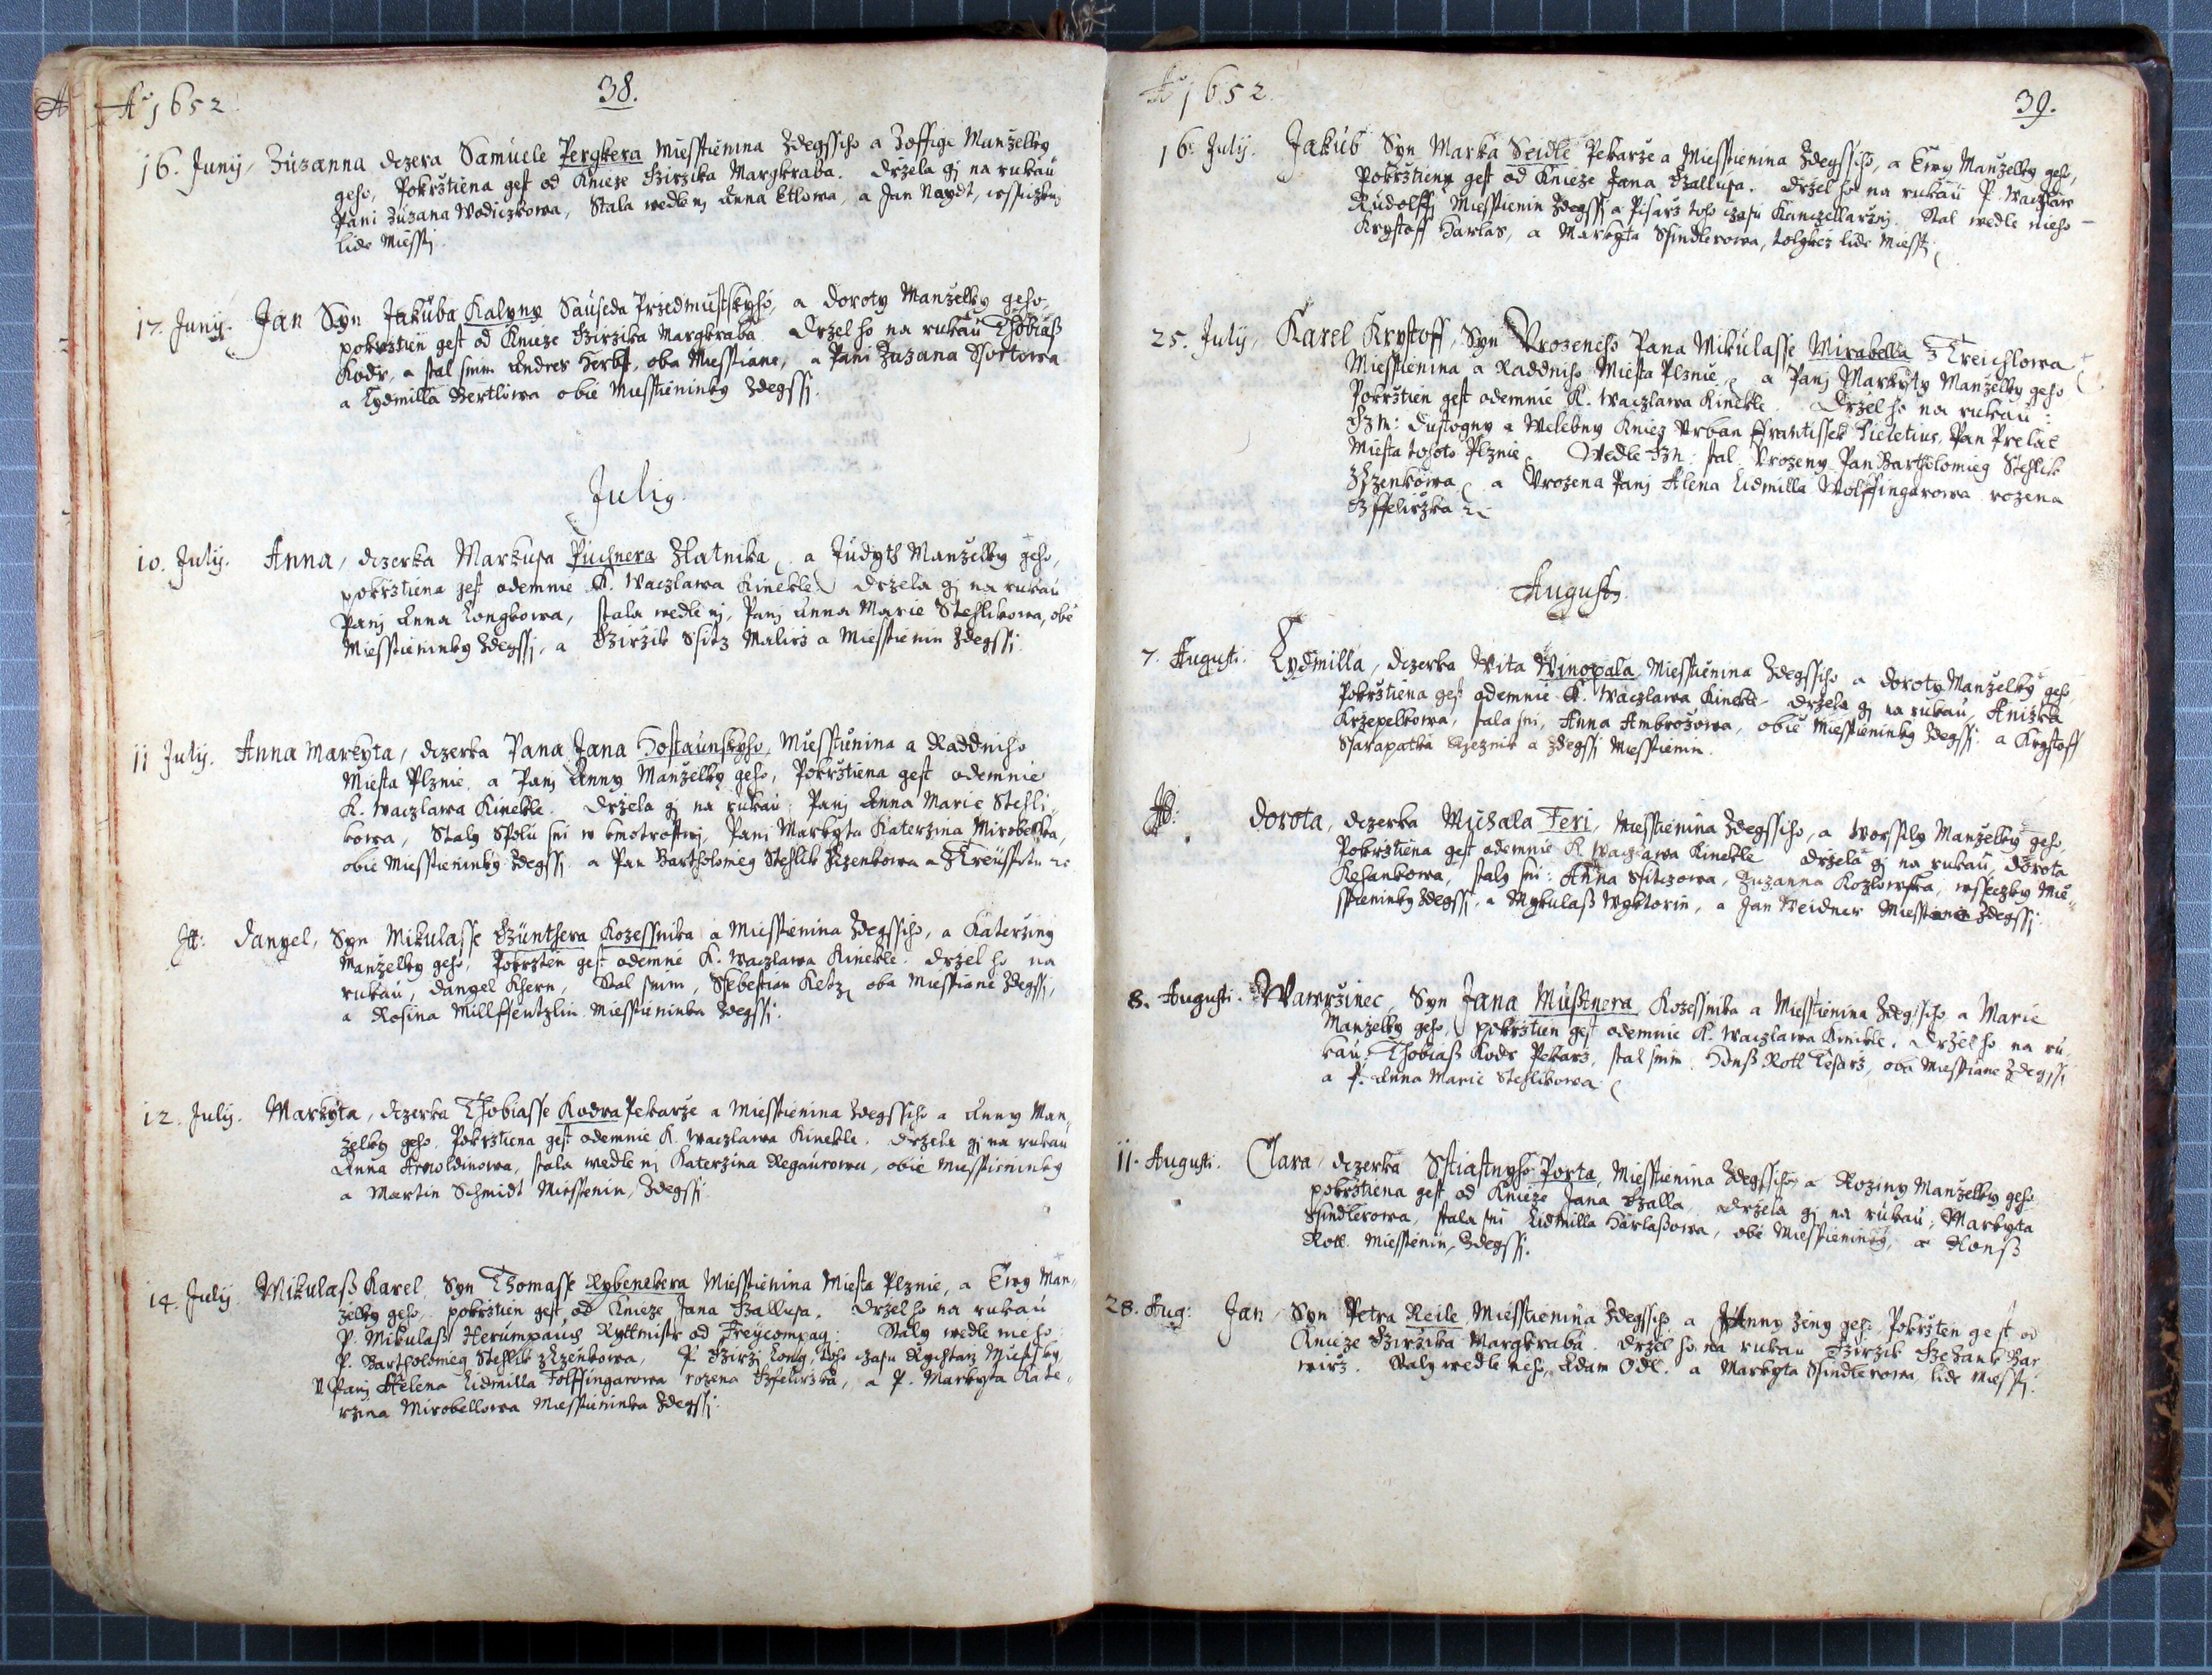 Ao 1652
38.
16. Junij, Zuzanna dczera Samuele Pergkera Miesstienina Zdegssiho a Zoffige Manželky
geho, Pokrztiena gest od Knieze Girzika Margkraba. Držela gi na rukau
Pani Zuzana Wodiczkowa, Stala wedle nj Anna Etlowa, a Jan Naydt, wssiczkni
lide Miesstj.
17. Junij. Jan Syn Jakuba Kalyny Sauseda Przedmiestskyho, a Doroty Manželky geho,
pokrztien gest od Knieze Girzika Margkraba Držel ho na rukau Thobiaß
Kodr, a stal snim Andres Herbst, oba Miesstiane, a Pani Zuzana
a Lydmilla Bertlowa obie Miesstieninky Zdegssj.
Julij
10. Julij. Anna, dczerka Markusa Puchnera Zlatnika, a Judyth Manželky geho,
pokrztiena gest odemnie K. Waczlawa Kinekle. Držela gj na rukau
Panj Anna Longkowa, stala wedle nj, Panj Anna Marie Stehlikowa, obie
Miesstieninky Zdegssj, a Girzik Ssitz Malirz a Miesstienin Zdegssj.
11 Julij. Anna Markyta, dczerka Pana Jana Hostaunskyho, Miesstienina a Raddniho
Miesta Plznie, a Panj Anny Manželky geho, Pokrztiena gest odemnie
K. Waczlawa Kinekle. Držela gj na rukau: Panj Anna Marie Stehli-
kowa, Staly Spolu sni w kmotrostwj, Panj Markyta Katerzina Mirobellka,
obie Miesstieninky Zdegssj a Pan Bartholomieg Stehlik z Czenkowa a
Danyel, Syn Mikulasse Günthera Kozessnika a Miesstienina Zdegssiho, a Katerziny
Manželky geho, Pokrzten gest odemne K. Waczlawa Kinekle. Držel ho na
rukau, Danyel Khern, Stal snim, Ssebestian Ketz, oba Miesstiane Zdegssj,
a Rosina Millffentzlin Miesstieninka Zdegssj.
12. Julij. Markyta, dczerka Thobiasse Kodra Pekarze a Miesstienina Zdegssiho a Anny Man-
želky geho, Pokrztiena gest odemnie K. Waczlawa Kinekle. Držela gj na rukau
Anna Arnoldinowa, stala wedle nj Katerzina Regaurowa, obie Miesstieninky
a Martin Schmidt Miesstienin, Zdegssj.
14. Julij. Mikulaß Karel, Syn Thomasse Rybenekera Miesstienina Miesta Plznie, a Ewy Man-
želky geho, pokrztien gest od Knieze Jana Gallusa. Držel ho na rukau
P. Mikulaß Herumpauch Ryttmistr od Freycompag: Staly wedle nieho
P. Bartholomieg Stehlik z Czenkowa, P. Girzj Long, toho czasu Rychtarz Miestsky
Panj Helena Lidmilla Folffingarowa rozena, a P. Markyta Kate-
rzina Mirobellowa Miesstieninka Zdegssj.
Ao 1652.
39.
16. Julij. Jakub Syn Marka Seidle Pekarze a Miesstienina Zdegssiho, a Ewy Manželky geho,
Pokrztieny gest od Knieze Jana Gallusa. Držel ho na rukau P. Waczlaw
Rudolffj Miesstienin Zdegssj a Pisarz toho czasu Kanczellarzskj. Stal wedle nieho
Krystoff Harlas, a Markyta Ssindlerowa, tolykéz lide Miesstj.
25. Julij, Karel Krystoff, Syn Vrozeneho Pana Mikulasse Mirabella z Treichlowa
Miesstienina a Raddniho Miesta Plznie, a Panj Markyty Manželky geho
Pokrztien gest odemnie K. Waczlawa Kinekle. Držel ho na rukau:
Dustogny a Welebny Kniez Vrban Frantissek, Pan Prelat
Miesta tohoto Plznie. Wedle stal Vrozeny Pan Bartholomieg Stehlik
z Czenkowa, a Vrozena Panj Alena Lidmilla Wolffingarowa rozena
Augusti.
7. Augusti. Lydmilla, dczerka Wita Winopala, Miesstienina Zdegssiho a Doroty Manželky geho,
Pokrztiena gest odemnie K. Waczlawa Kinekle. Držela gj na rukau, Anizka
Krzepelkowa, stala sni, Anna Ambrozowa, obie Miesstieninky Zdegssj a Krystoff
Ssarapatka Rzeznik a Zdegssj Miesstienin.
Dorota, dczerka Michala Feri, Miesstienina Zdegssiho, a Worssily Manželky geho,
Pokrztiena gest odemnie K. Waczlawa Kinekle Držela gj na rukau, Dorota
Kesankowa, staly sni: Anna Ssitczowa, Zuzanna Kozlowska, wssiczky Mie-
sstieninky Zdegssj, a Mykulaß Wyktorin, a Jan Weidner Miesstiane Zdegssj.
8. Augusti. Wawrzinec, Syn Jana Mußtnera, Kozessnika a Miesstienina Zdegssiho a Marie
Manželky geho, pokrztien gest odemnie K. Waczlawa Kinekle. Držel ho na ru-
kau: Thobiaß Kodr Pekarz, stal snim Hanß Rotl Tesarz, oba Miesstiane Zdegssj
a P. Anna Marie Stehlikowa.
11. Augusti. Clara, dczerka Sstiastnyho Porta, Miesstienina Zdegssiho, a Roziny Manželky geho
pokrztiena gest od Knieze Jana Galla. Držela gj na rukau, Markyta
Ssindlerowa, stala sni Lidmilla Harlaßowa, obe Miesstieninky, a Hanß
Rotl. Miesstenin, Zdegssj.
28. Aug: Jan, Syn Petra Reile Miesstienina Zdegssiho a Anny ženy geho Pokrzten gest od
Knieze Girzika Margkraba. Držel ho na rukau Girzik
Staly wedle neho, Adam Odl. a Markyta Ssindlerowa, lide Miesstj.